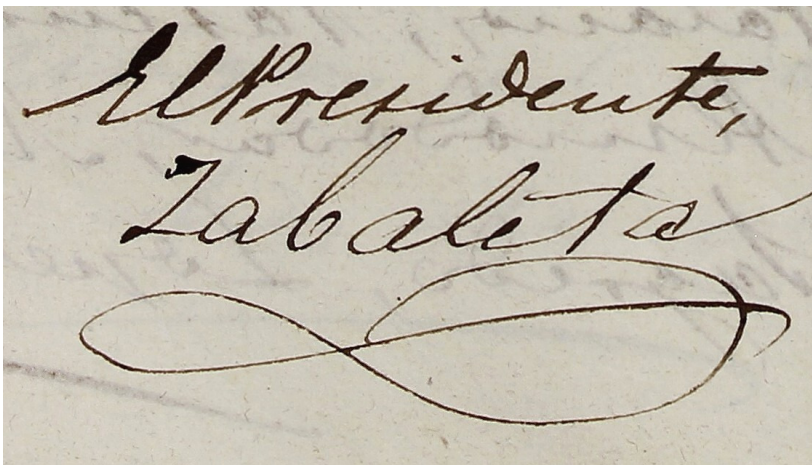 El Presidente,
Zabaleta